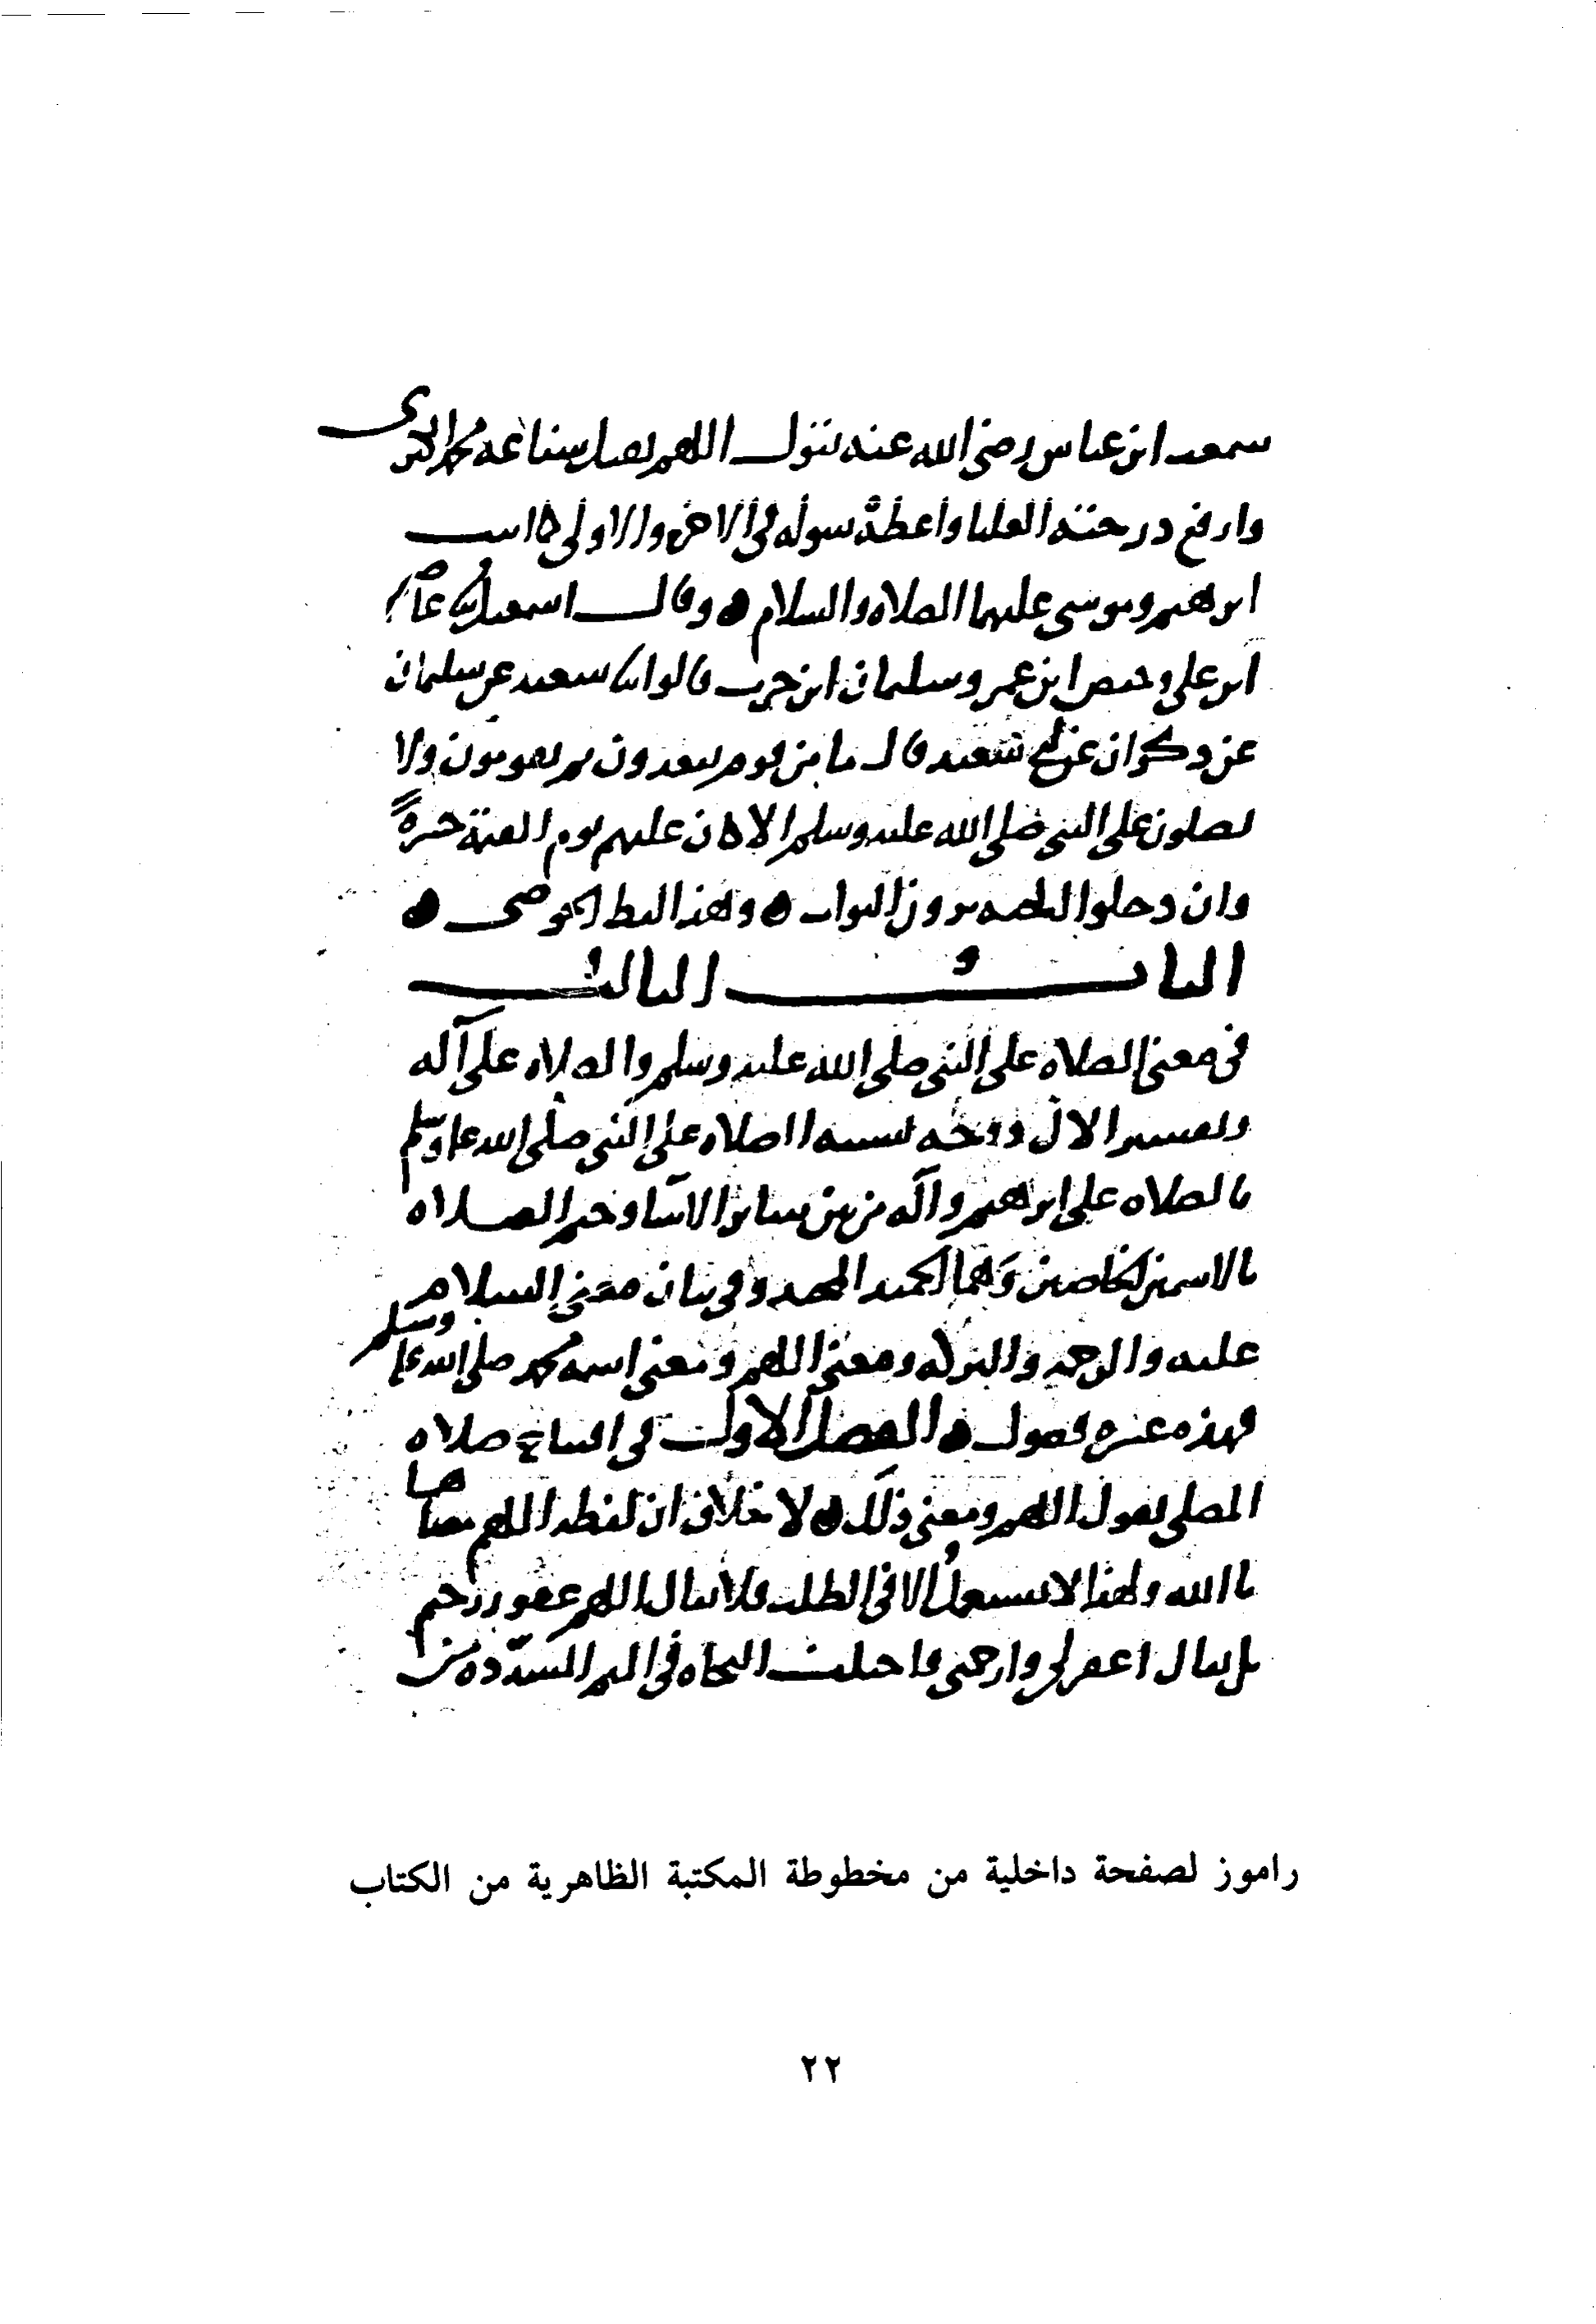 سمعت ابن عباس رضي الله عنه يقول اللهم تقبل شفاعة محمد الكبرى
وارفع درجته العليا واعطه سوله في الاخرة والاولى كما اتيت
ابرهيم وموسى عليهما الصلاه والسلام ه وقال اسمعيل عاصم
ابن علي وحفص ابن عمر وسليمان ابن حرب قالوا سا سعيد عن سليمان
عن ذكوان عن ابي سعيد قال ما من قوم يقعدون ثم يقومون ولا
يصلون على النبي صلى الله عليه وسلم الا كان عليهم يوم القيمة حسرة
وان دخلوا الجنه يرون الثواب ه وهذا لفظ الحوضي ه
الباب الثالث
في معنى الصلاه على النبي صلى الله عليه وسلم والصلاه على آله
وتفسير الآل ووجه تشبيه الصلاه على النبي صلى الله عليه وسلم
بالصلاه على ابرهيم وآله من بين سائر الانبيا وختم الصلاه
بالاسمين الخاصين وهما الحميد المجيد وفي بيان معنى السلام
عليه والرحمه والبركه ومعنى اللهم ومعنى اسمه محمد صلى الله عليه وسلم
فهذه عشره فصول ه الفصل الاول في افتتاح صلاه
المصلي بقول اللهم ومعنى ذلك ه لا خلاف ان لفظه اللهم معناها
يا الله ولهذا لا تستعمل الا في الطلب فلا يقال اللهم غفور رحيم
بل يقال اغفر لي وارحمني واختلف النحاه في الميم المشدده من
راموز لصفحة داخلية من مخطوطة المكتبة الظاهرية من الكتاب
٢٢